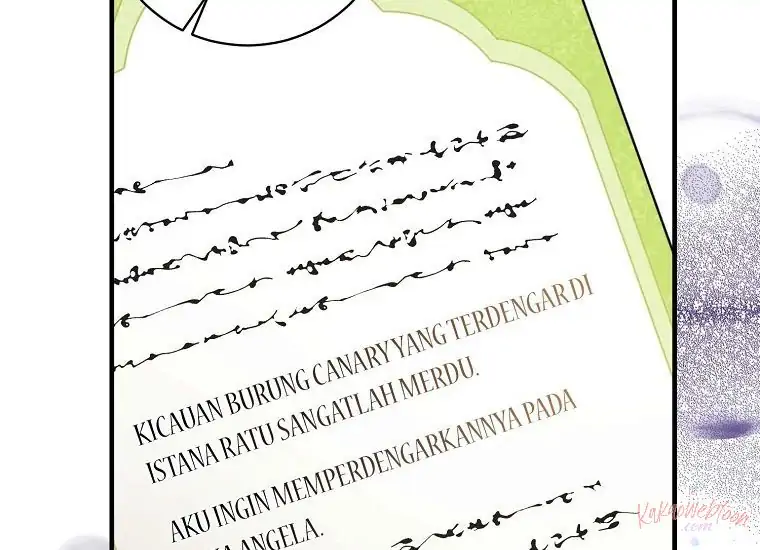 KICAUAN BURUNG CANARY YANG TERDENGAR DI
ISTANA RATU SANGATLAH MERDU.
AKU INGIN MEMPERDENGARKANNYA PADA
ANGELA.
Kakaowebtoon
.com